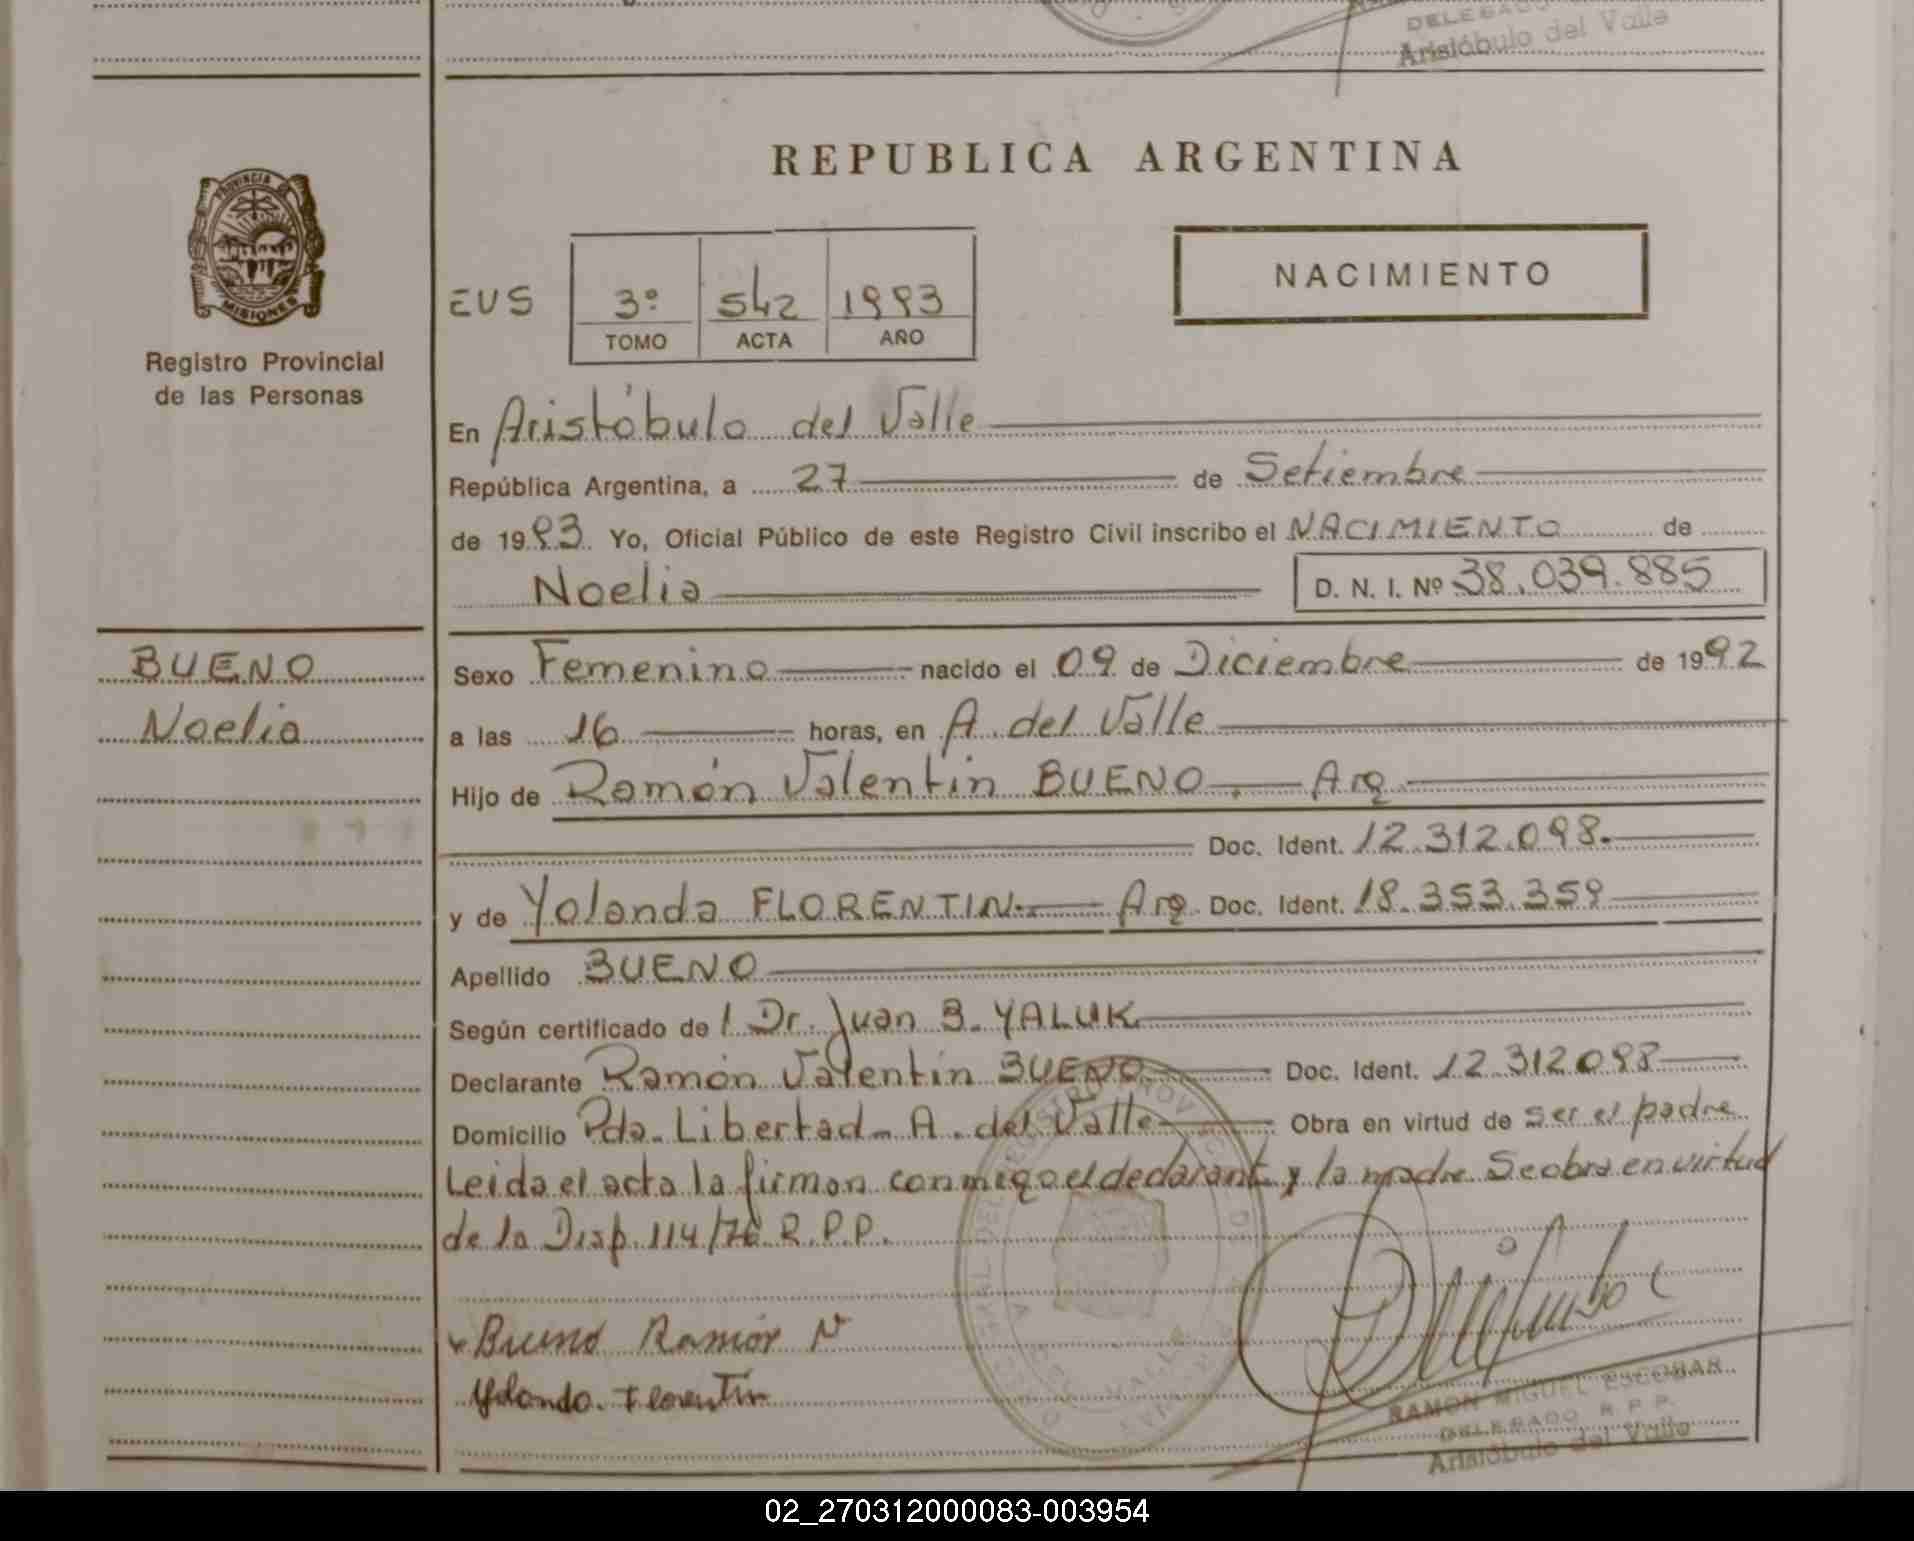 DELEGADO
Aristóbulo del Valle
PROVINCIA DE
MISIONES
Registro Provincial
de las Personas
REPUBLICA ARGENTINA
NACIMIENTO
EUS 3º 542 1993
TOMO ACTA AÑO
En Aristóbulo del Valle
República Argentina, a 27 de Setiembre
de 1993 Yo, Oficial Público de este Registro Civil inscribo el NACIMIENTO de
Noelia D. N. I. Nº 38.039.885
BUENO
Noelia
Sexo Femenino nacido el 09 de Diciembre de 1992
a las 16 horas, en A. del Valle
Hijo de Ramón Valentin BUENO. Arg
Doc. Ident. 12.312.098.
y de Yolanda FLORENTIN. Arg. Doc. Ident. 18.353.359
Apellido BUENO
Según certificado de l Dr. Juan B. YALUK
Declarante Ramón Valentin BUENO Doc. Ident. 12.312.098
Domicilio Pda. Libertad - A. del Valle Obra en virtud de ser el padre
Leida el acta la firman conmigo el declarante y la madre Se obra en virtud
de la Disp. 114/76 R.P.P.
Bueno Ramón V
Yolanda. Florentin
RAMON MIGUEL ESCOBAR
DELEGADO R. P. P.
Aristóbulo del Valle
02_270312000083-003954